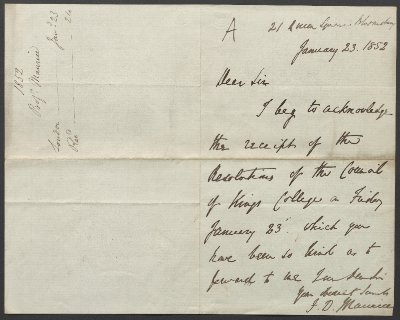 1852
Prof. Maurice
London Jan. 23
Rec. 24
A
21 Queen Square Bloomsbury
January 23. 1852
Dear Sir
I beg to acknowledge
the receipt of the
Resolutions of the Council
of Kings College on Friday
January 23 which you
have been so kind as to
forward to me
Your obedient Servant
F. D. Maurice